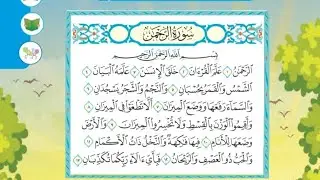 سورة الرحمن
بسم الله الرحمن الرحيم
الرَّحْمَنُ ١ عَلَّمَ الْقُرْءَانَ ٢ خَلَقَ الْإِنسَنَ ٣ عَلَّمَهُ الْبَيَانَ ٤
الشَّمْسُ وَالْقَمَرُ بِحُسْبَانٍ ٥ وَالنَّجْمُ وَالشَّجَرُ يَسْجُدَانِ ٦
وَالسَّمَاءَ رَفَعَهَا وَوَضَعَ الْمِيزَانَ ٧ أَلَّا تَطْغَوْا فِي الْمِيزَانِ ٨
وَأَقِيمُوا الْوَزْنَ بِالْقِسْطِ وَلَا تُخْسِرُوا الْمِيزَانَ ٩ وَالْأَرْضَ
وَضَعَهَا لِلْأَنَامِ ١٠ فِيهَا فَكِهَةٌ وَالنَّخْلُ ذَاتُ الْأَكْمَامِ ١١
وَالْحَبُّ ذُو الْعَصْفِ وَالرَّيْحَانُ ١٢ فَبِأَيِّ ءَالَاءِ رَبِّكُمَا تُكَذِّبَانِ ١٣